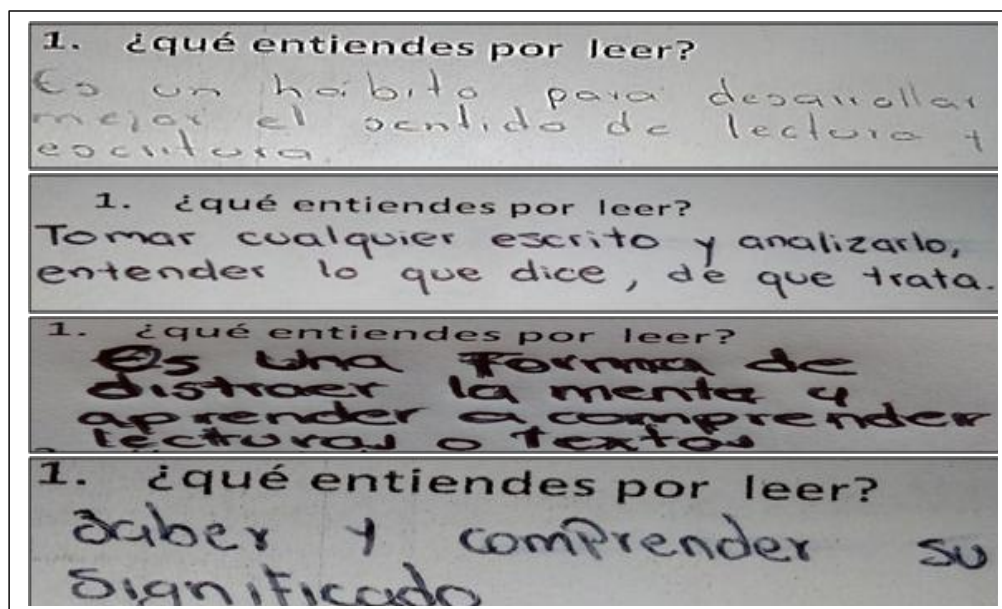 1. ¿qué entiendes por leer?
Es un hábito para desarrollar
mejor el sentido de lectura y
escritura.
1. ¿qué entiendes por leer?
Tomar cualquier escrito y analizarlo,
entender lo que dice, de que trata.
1. ¿qué entiendes por leer?
Es una forma de
distraer la mente y
aprender a comprender
lecturas o textos
1. ¿qué entiendes por leer?
Saber y comprender su
significado